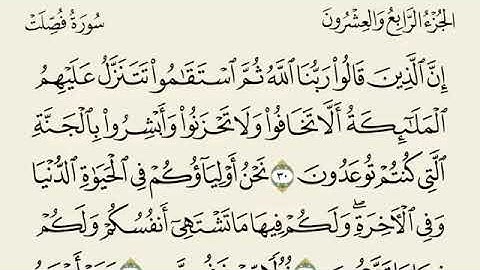 الجُزْءُ الرَّابِعُ وَالعِشْرُونَ سُورَةُ فُصِّلَتْ
إِنَّ ٱلَّذِينَ قَالُوا۟ رَبُّنَا ٱللَّهُ ثُمَّ ٱسْتَقَـٰمُوا۟ تَتَنَزَّلُ عَلَيْهِمُ
ٱلْمَلَـٰٓئِكَةُ أَلَّا تَخَافُوا۟ وَلَا تَحْزَنُوا۟ وَأَبْشِرُوا۟ بِٱلْجَنَّةِ
ٱلَّتِى كُنتُمْ تُوعَدُونَ ٣٠ نَحْنُ أَوْلِيَآؤُكُمْ فِى ٱلْحَيَوٰةِ ٱلدُّنْيَا
وَفِى ٱلْـَٔاخِرَةِ ۖ وَلَكُمْ فِيهَا مَا تَشْتَهِىٓ أَنفُسُكُمْ وَلَكُمْ